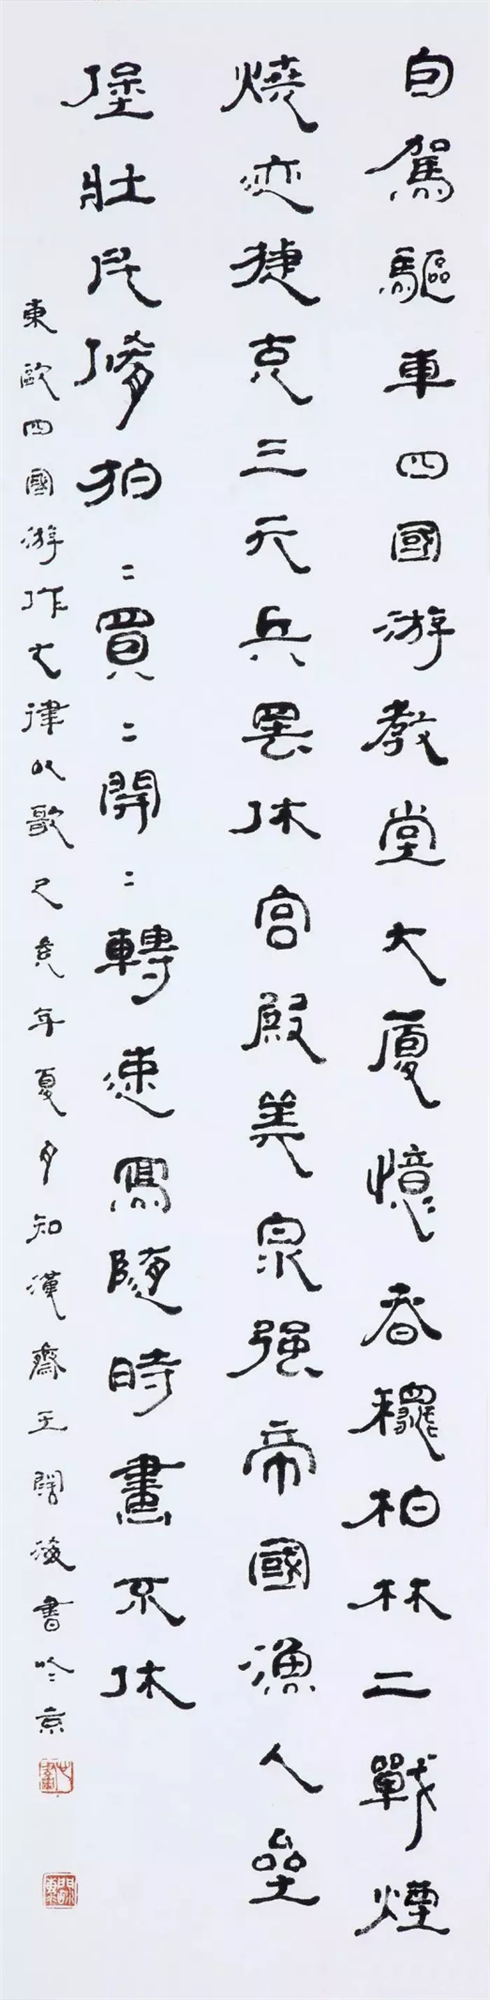 自駕驅車四國游教堂大厦憶春龝柏林二戰煙
燒迹捷克三天兵罢休宫殿美泉强帝國漁人壘
堡壯民脩拍=買=開=轉速寫隨時畫不休
東歐四國游作七律以歌己亥年夏月知漢齋王闊海書於京